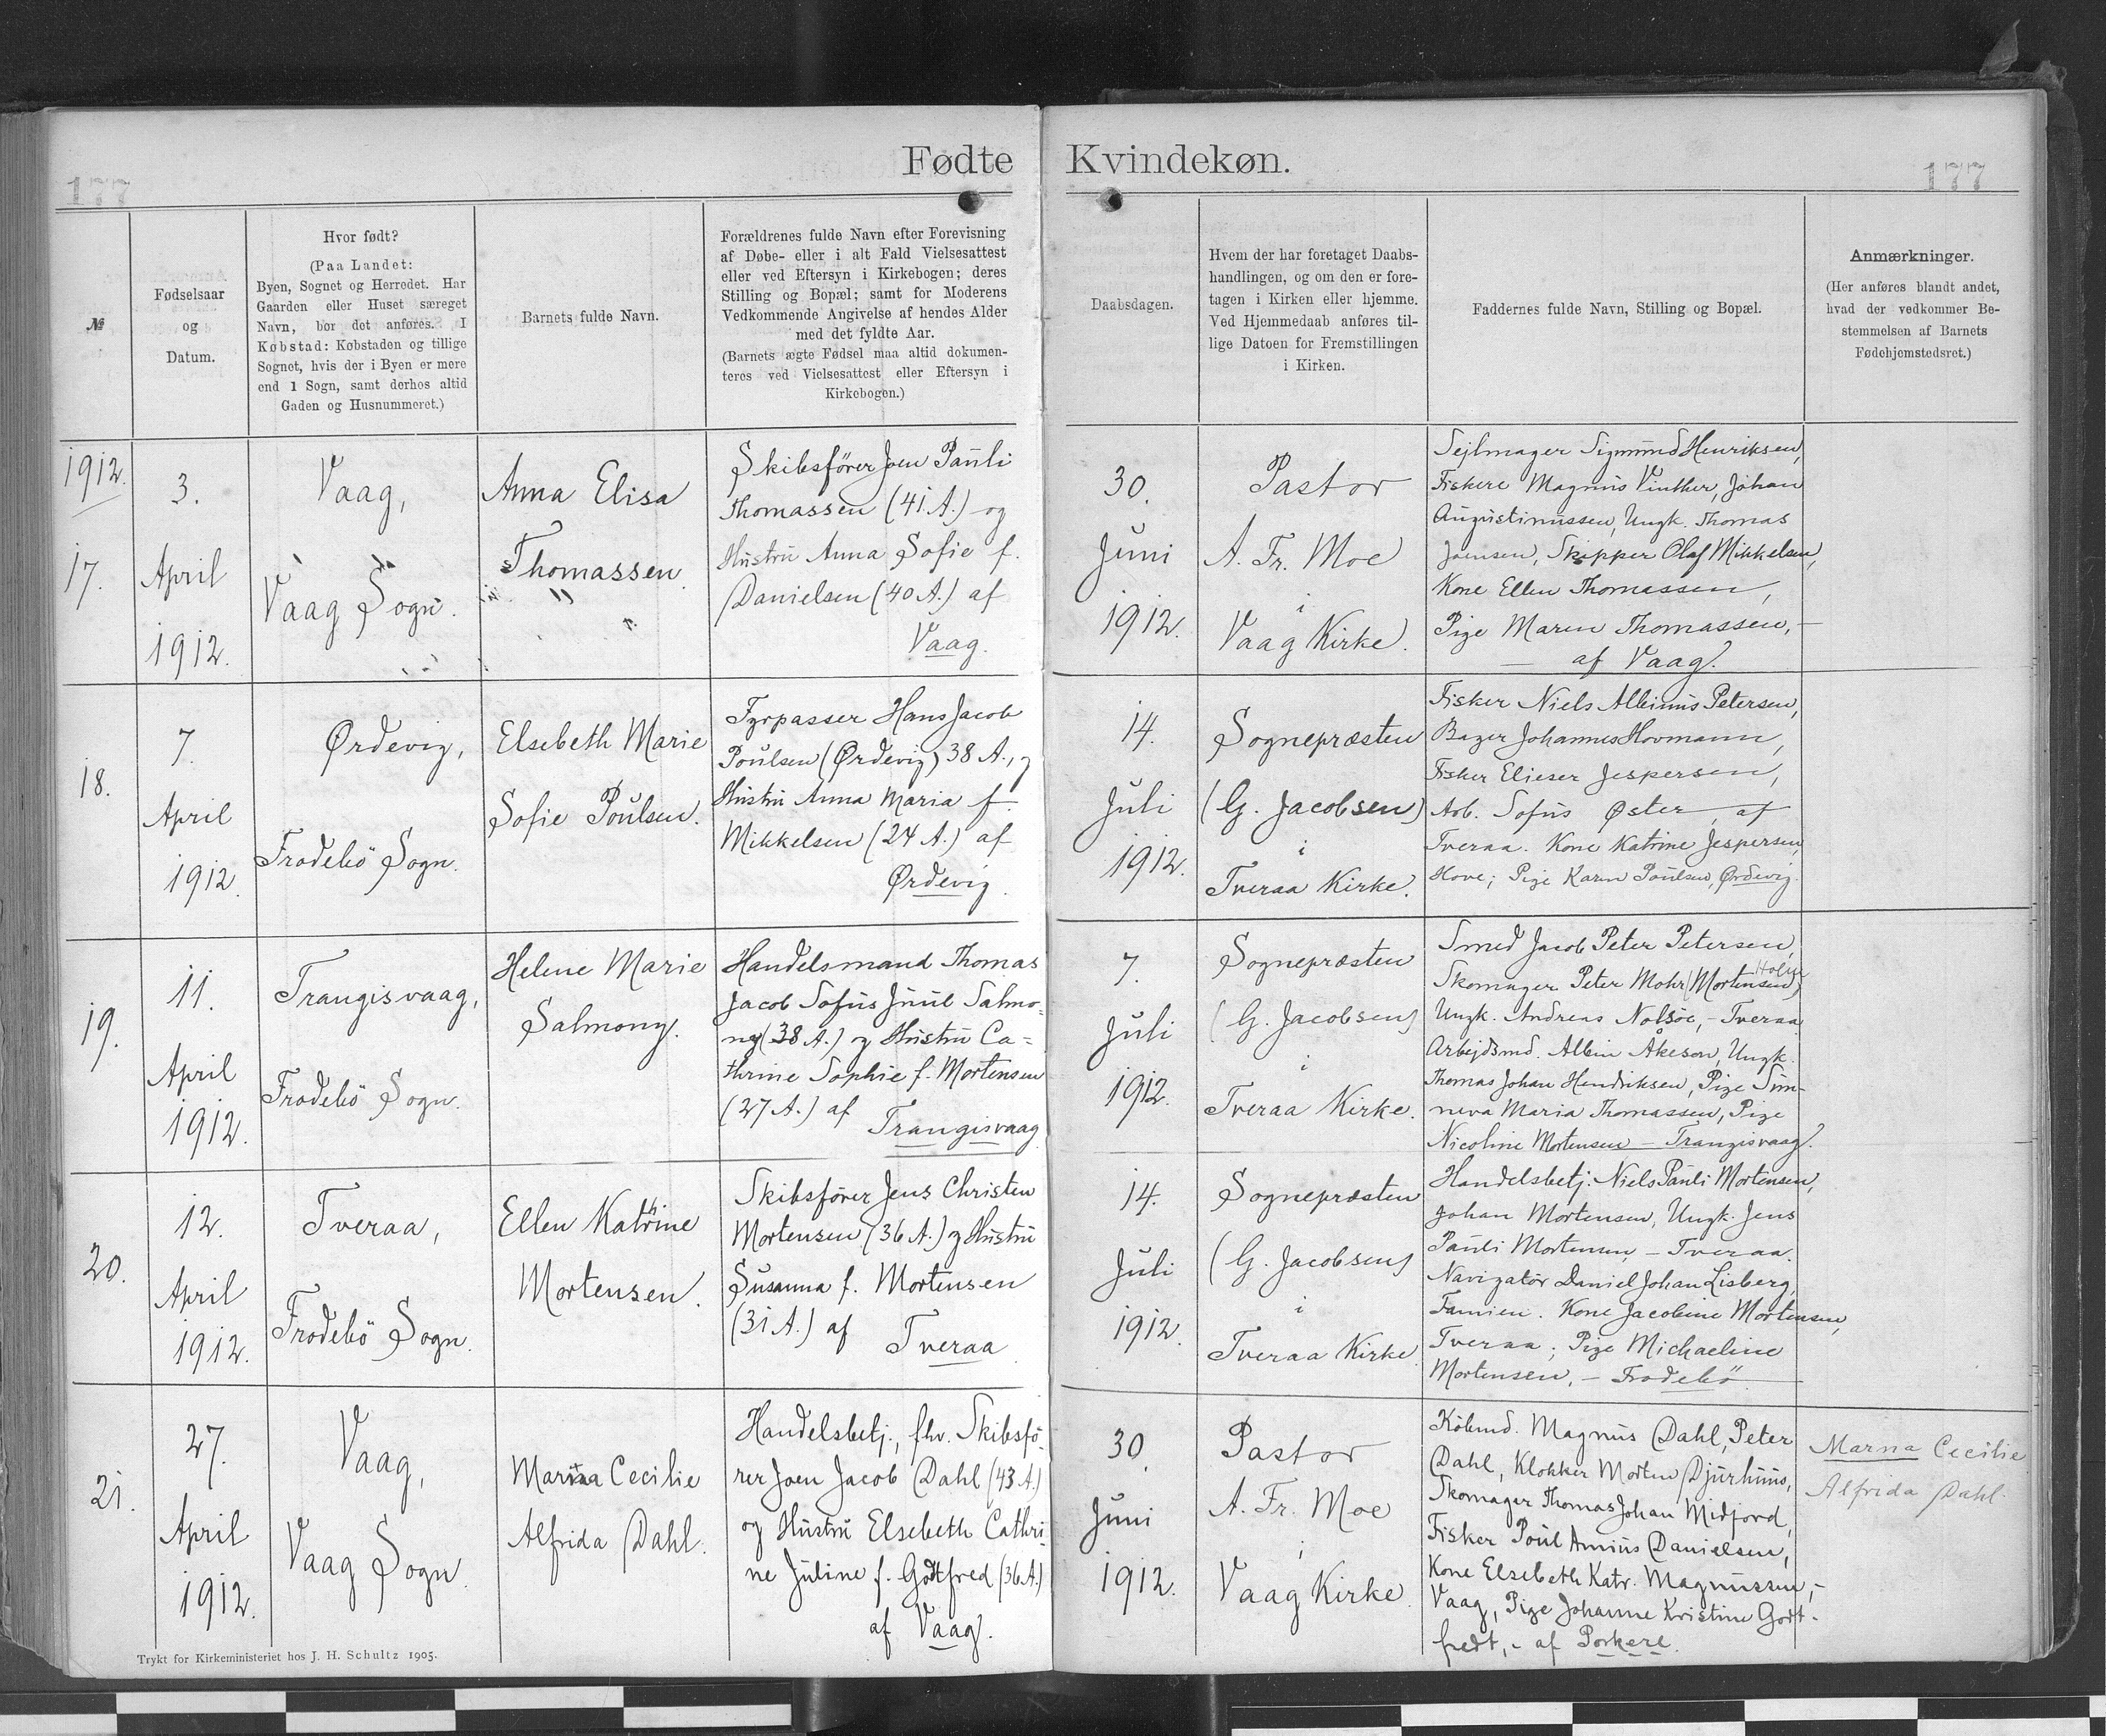 Fødte
Kvindekøn.
177
177
№
Fødselsaar
og
Datum.
Hvor født?
(Paa Landet:
Byen, Sognet og Herredet. Har
Gaarden eller Huset særeget
Navn, bør det anføres. I
Købstad: Købstaden og tillige
Sognet, hvis der i Byen er mere
end 1 Sogn, samt derhos altid
Gaden og Husnummeret.)
Barnets fulde Navn.
Forældrenes fulde Navn efter Forevisning
af Døbe- eller i alt Fald Vielsesattest
eller ved Eftersyn i Kirkebogen; deres
Stilling og Bopæl; samt for Moderens
Vedkommende Angivelse af hendes Alder
med det fyldte Aar.
(Barnets ægte Fødsel maa altid dokumen-
teres ved Vielsesattest eller Eftersyn i
Kirkebogen.)
Daabsdagen.
Hvem der har foretaget Daabs-
handlingen, og om den er fore-
tagen i Kirken eller hjemme.
Ved Hjemmedaab anføres til-
lige Datoen for Fremstillingen
i Kirken.
Faddernes fulde Navn, Stilling og Bopæl.
Anmærkninger.
(Her anføres blandt andet,
hvad der vedkommer Be-
stemmelsen af Barnets
Fødehjemstedsret.)
1912.
17.
3.
April
1912.
Vaag,
Vaag Sogn.
Anna Elisa
Thomassen
Skibsfører Joen Pauli
Thomassen (41 A.) og
Hustru Anna Sofie f.
Danielsen (40 A.) af
Vaag.
30.
Juni
1912.
Pastor
A. Fr. Moe
i
Vaag Kirke.
Sejlmager Sigmund Henriksen,
Fiskere Magnus Vinther, Johan
Augustinussen, Ungk. Thomas
Joensen, Skipper Olaf Mikkelsen,
Kone Ellen Thomassen,
Pige Maren Thomassen, –
– af Vaag.
18.
7.
April
1912.
Ørdevig,
Frodebö Sogn.
Elsebeth Marie
Sofie Poulsen.
Fyrpasser Hans Jacob
Poulsen (Ørdevig) 38 A., og
Hustru Anna Maria f.
Mikkelsen (24 A.) af
Ørdevig.
14.
Juli
1912.
Sognepræsten
(G. Jacobsen)
i
Tveraa Kirke.
Fisker Niels Albinus Petersen,
Bager Johannes Hovmann,
Fisker Elieser Jespersen,
Arb. Sofus Øster, af
Tveraa. Kone Katrine Jespersen,
Hove; Pige Karen Poulsen, Ørdevig.
19.
11.
April
1912.
Trangisvaag,
Frodebö Sogn.
Helene Marie
Salmony.
Handelsmand Thomas
Jacob Sofus Juul Salmo-
ny (38 A.) og Hustru Ca=
thrine Sophie f. Mortensen
(27 A.) af
Trangisvaag
7.
Juli
1912.
Sognepræsten
(G. Jacobsen)
i
Tveraa Kirke.
Smed Jacob Peter Petersen,
Skomager Peter Mohr (Mortensen)
Ungk. Andreas Nolsøe, – Tveraa
Arbejdsmd. Albin Åkeson, Ungk.
Thomas Johan Hendriksen, Pige Sun-
neva Maria Thomassen, Pige
Nicoline Mortensen – Trangisvaag.
20.
12.
April
1912.
Tveraa,
Frodebö Sogn.
Ellen Kathrine
Mortensen.
Skibsfører Jens Christen
Mortensen (36 A.) og Hustru
Susanna f. Mortensen
(31 A.) af
Tveraa
14.
Juli
1912.
Sognepræsten
(G. Jacobsen)
i
Tveraa Kirke.
Handelsbetj. Niels Pauli Mortensen,
Johan Mortensen, Ungk. Jens
Pauli Mortensen, – Tveraa.
Navigatör Daniel Johan Lisberg,
Famien. Kone Jacobine Mortensen,
Tveraa; Pige Michaeline
Mortensen, – Frodebö
21.
27.
April
1912.
Vaag,
Vaag Sogn.
Marna Cecilie
Alfrida Dahl.
Handelsbetj., fhv. Skibsfö-
rer Joen Jacob Dahl (43 A.)
og Hustru Elsebeth Cathri-
ne Juline f. Godtfred (36 A.)
af Vaag.
30.
Juni
1912.
Pastor
A. Fr. Moe
i
Vaag Kirke.
Købmd. Magnus Dahl, Peter
Dahl, Klokker Morten Djurhuus,
Skomager Thomas Johan Midjord,
Fisker Poul Anius Danielsen,
Kone Elsebeth Katr. Magnussen, –
Vaag, Pige Johanne Kristine Godt-
fredt, – af Porkere.
Marna Cecilie
Alfrida Dahl.
Trykt for Kirkeministeriet hos J. H. Schultz 1905.